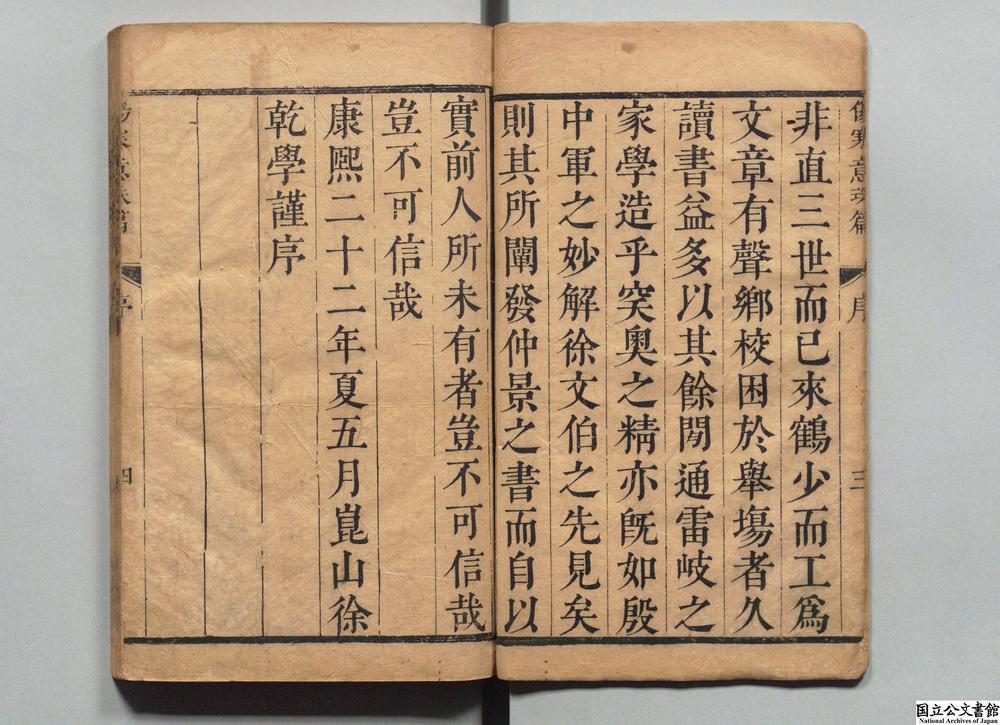 傷寒意珠篇 序 三
非直三世而已來鶴少而工爲
文章有聲鄉校困於舉塲者久
讀書益多以其餘閒通雷岐之
家學造乎突奧之精亦旣如殷
中軍之妙解徐文伯之先見矣
則其所闡發仲景之書而自以
實前人所未有者豈不可信哉
豈不可信哉
康熙二十二年夏五月崑山徐
乾學謹序
傷寒意珠篇 序 四
国立公文書館
National Archives of Japan